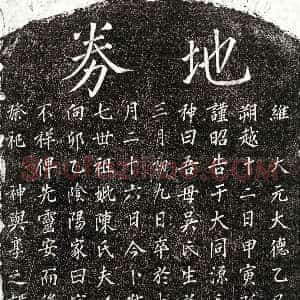 地券
維大元大德乙
朔越十二日甲寅
謹昭告于大同源
神曰吾母吳氏生
三月初九日卒於
月二十六日今卜
七世祖妣陳氏夫
向卯乙陰陽家曰
不祥俾先靈安而
祭祀神與享之